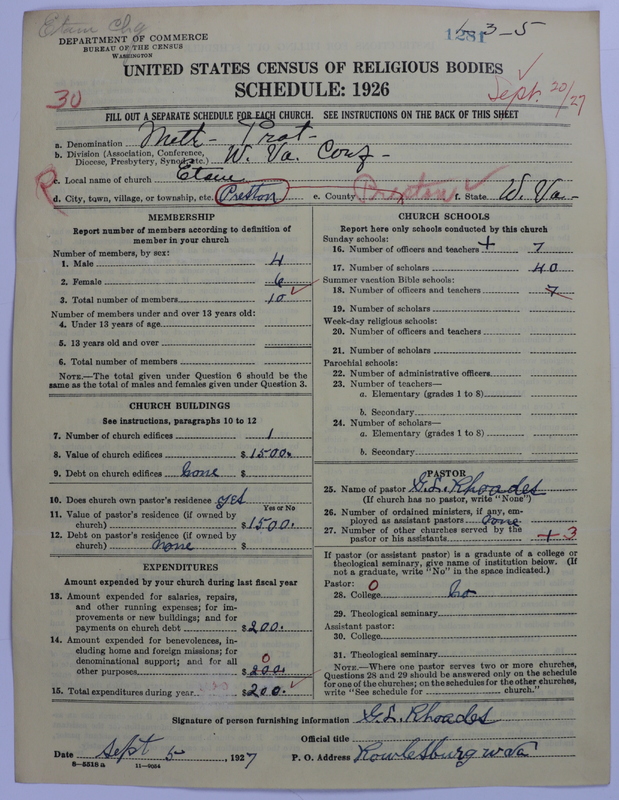 Etam Chg
DEPARTMENT OF COMMERCE
BUREAU OF THE CENSUS
WASHINGTON
1281
3-5
UNITED STATES CENSUS OF RELIGIOUS BODIES
SCHEDULE: 1926
30
Sept. 20/27
FILL OUT A SEPARATE SCHEDULE FOR EACH CHURCH. SEE INSTRUCTIONS ON THE BACK OF THIS SHEET
a. Denomination Meth- Prot-
b. Division (Association, Conference, Diocese, Presbytery, Synod, etc.) W. Va. Conf-
c. Local name of church Etam
R d. City, town, village, or township, etc. Preston e. County Preston f. State W. Va-
MEMBERSHIP
Report number of members according to definition of
member in your church
Number of members, by sex:
1. Male 4
2. Female 6
3. Total number of members 10
Number of members under and over 13 years old:
4. Under 13 years of age
5. 13 years old and over
6. Total number of members
NOTE.—The total given under Question 6 should be
same as the total of males and females given under Question 3.
CHURCH BUILDINGS
See instructions, paragraphs 10 to 12
7. Number of church edifices 1
8. Value of church edifices $1500.
9. Debt on church edifices None $
10. Does church own pastor's residence yes
Yes or No
11. Value of pastor's residence (if owned by
church) $1500.
12. Debt on pastor's residence (if owned by
church) None $
EXPENDITURES
Amount expended by your church during last fiscal year
13. Amount expended for salaries, repairs,
and other running expenses; for im-
provements or new buildings; and for
payments on church debt $200.
14. Amount expended for benevolences, in-
cluding home and foreign missions; for
denominational support; and for all
other purposes 0 $200.
15. Total expenditures during year $200.
CHURCH SCHOOLS
Report here only schools conducted by this church
Sunday schools:
16. Number of officers and teachers + 7
17. Number of scholars 40
Summer vacation Bible schools:
18. Number of officers and teachers 7
19. Number of scholars
Week-day religious schools:
20. Number of officers and teachers
21. Number of scholars
Parochial schools:
22. Number of administrative officers
23. Number of teachers—
a. Elementary (grades 1 to 8)
b. Secondary
24. Number of scholars—
a. Elementary (grades 1 to 8)
b. Secondary
PASTOR
25. Name of pastor G.L. Rhoades
(If church has no pastor, write "None")
26. Number of ordained ministers, if any, em-
ployed as assistant pastors None
27. Number of other churches served by the
pastor or his assistants + 3
If pastor (or assistant pastor) is a graduate of a college or
theological seminary, give name of institution below. (If
not a graduate, write "No" in the space indicated.)
Pastor: 0
28. College No
29. Theological seminary
Assistant pastor:
30. College
31. Theological seminary
NOTE.—Where one pastor serves two or more churches,
Questions 28 and 29 should be answered only on the schedule
for one of the churches; on the schedules for the other churches,
write "See schedule for church."
Signature of person furnishing information G.L. Rhoades
Official title
Date Sept 5, 1927 P. O. Address Rowlesburg W Va
8-5518a 11-9054